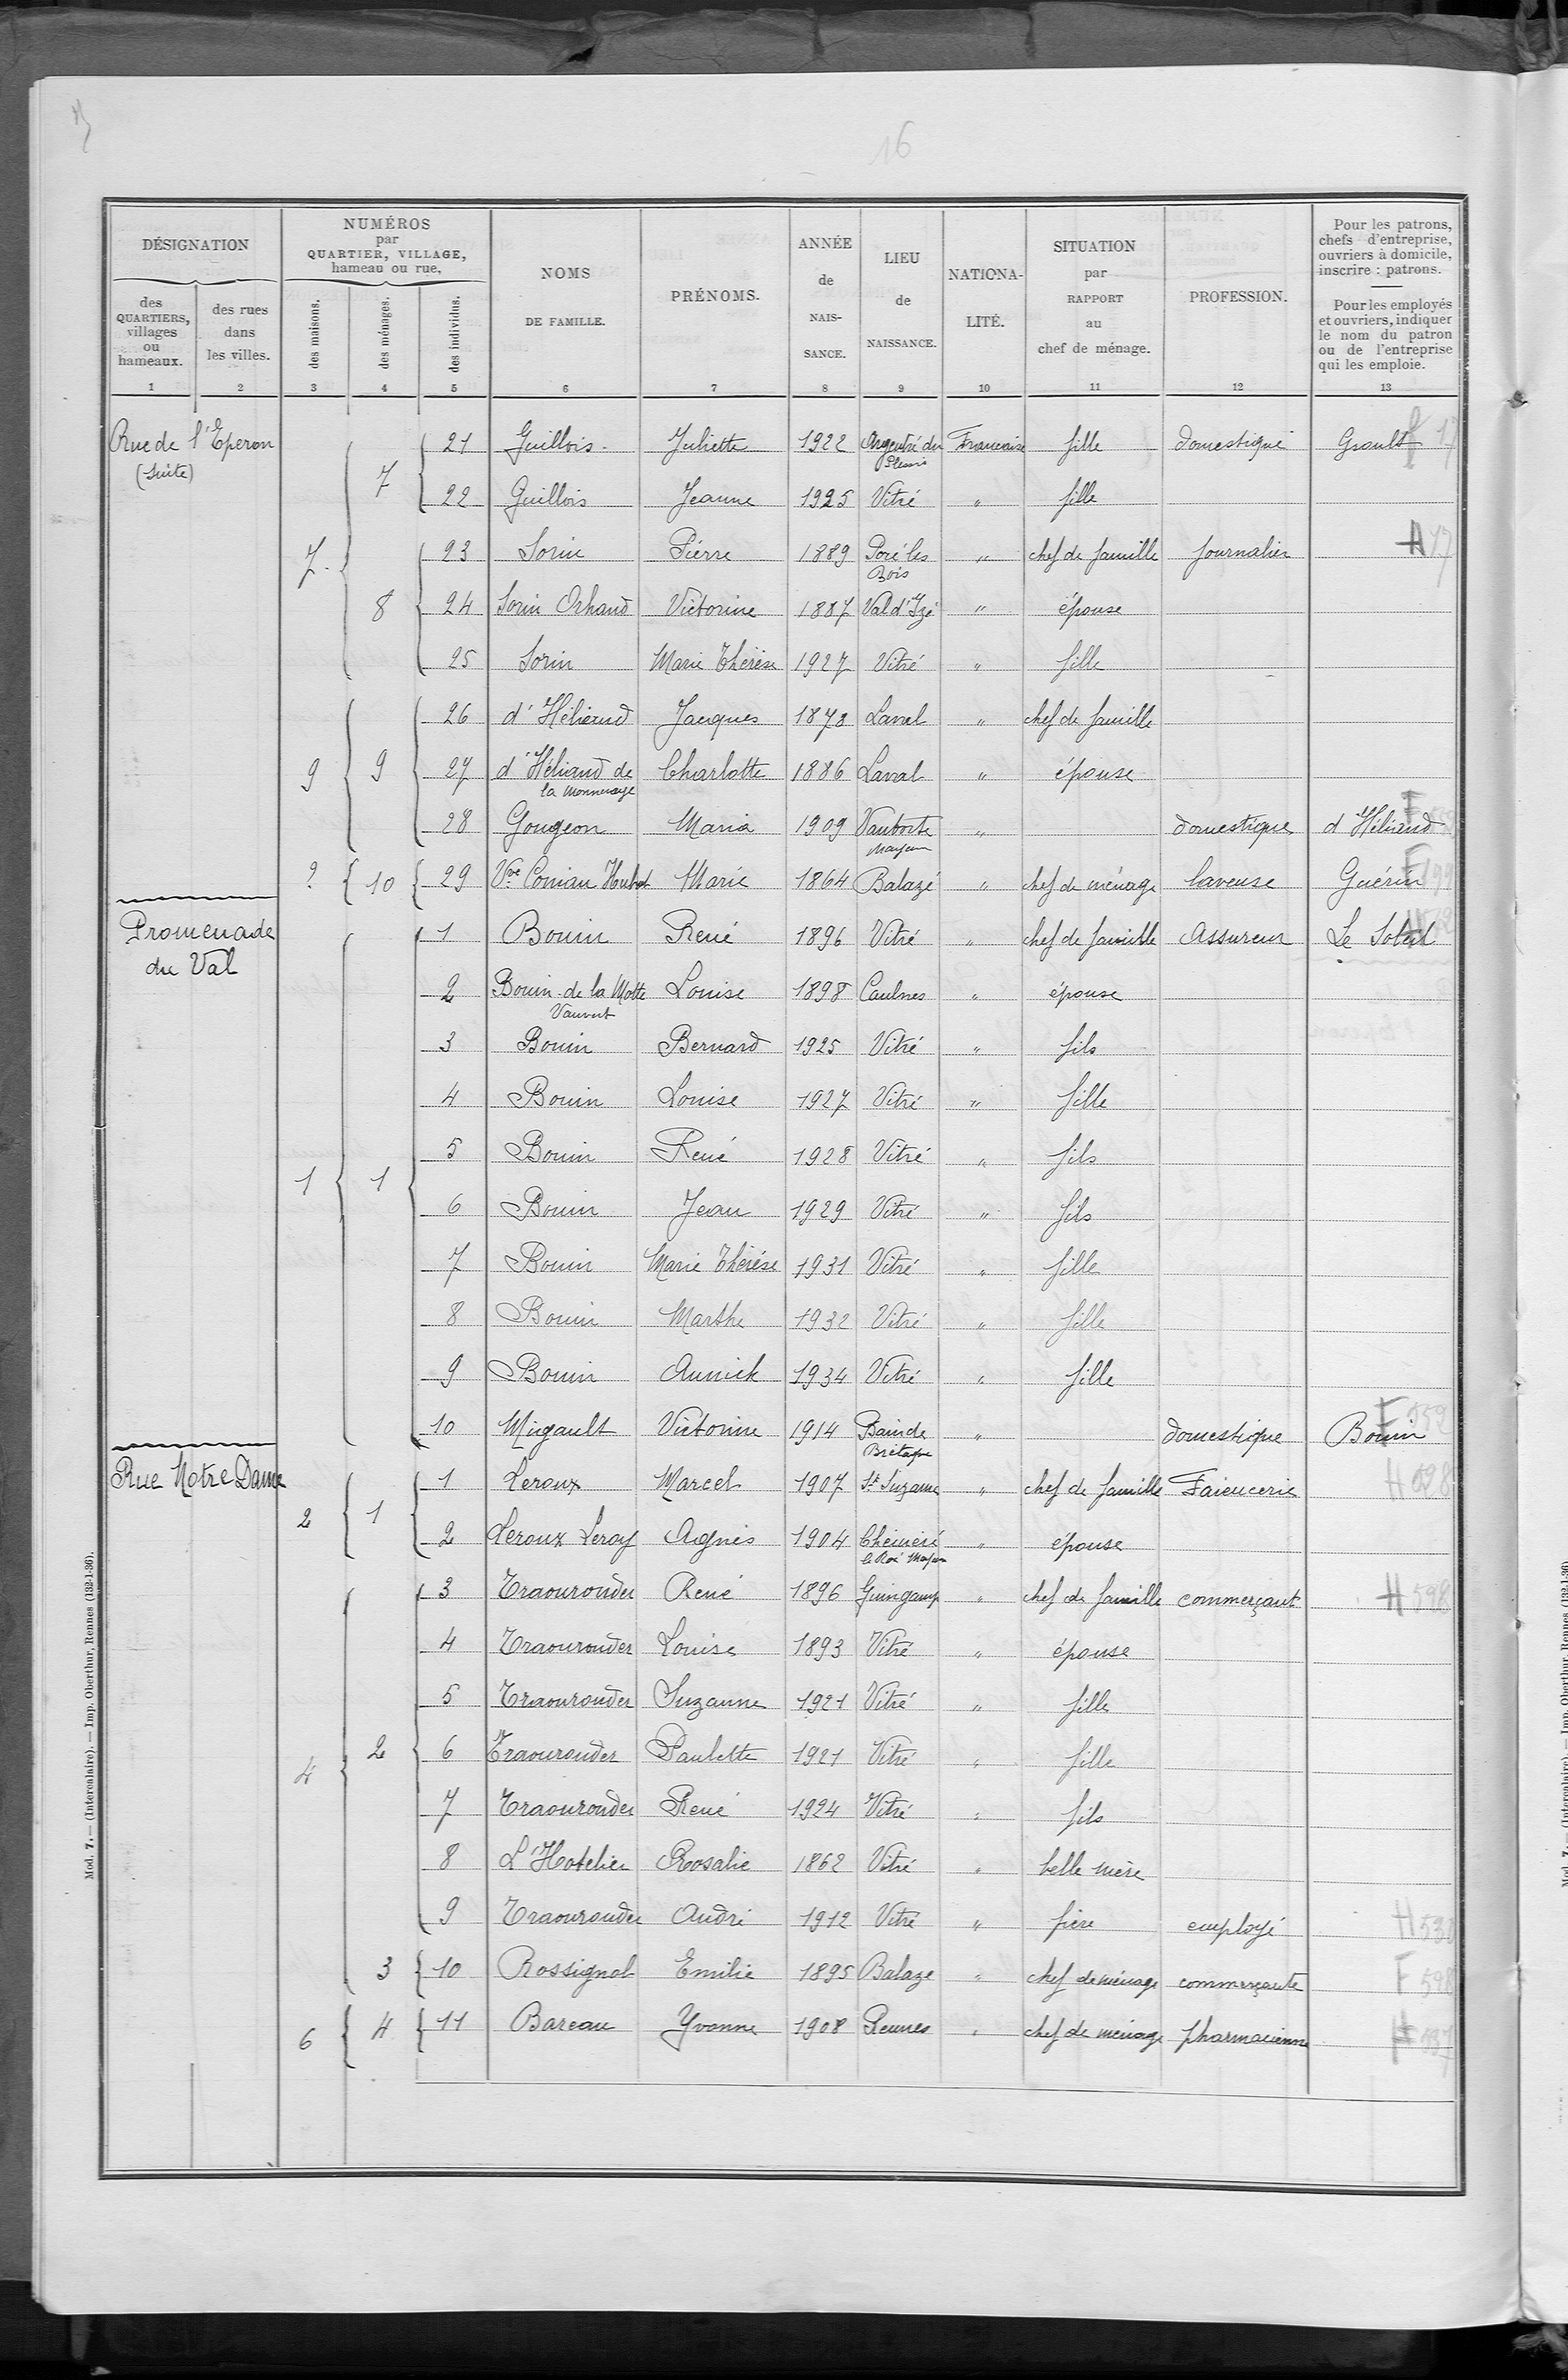 16
DÉSIGNATION
NUMÉROS
par
QUARTIER, VILLAGE,
hameau ou rue.
des
QUARTIERS,
villages
ou
hameaux.
des rues
dans
les villes.
des maisons.
des ménages.
des individus.
NOMS
DE FAMILLE.
PRÉNOMS.
ANNÉE
de
NAIS-
SANCE.
LIEU
de
NAISSANCE.
NATIONA-
LITÉ.
SITUATION
par
RAPPORT
au
chef de ménage.
PROFESSION.
Pour les patrons,
chefs d'entreprise,
ouvriers à domicile,
inscrire : patrons.
Pour les employés
et ouvriers, indiquer
le nom du patron
ou de l'entreprise
qui les emploie.
1 2 3 4 5 6 7 8 9 10 11 12 13
Rue de l'Eperon
(suite)
21 Guillois Juliette 1922 Argentré du Plessis Française fille domestique Groult
7
22 Guillois Jeanne 1925 Vitré " fille
7 23 Sorin Pierre 1889 Pocé les Bois " chef de famille journalier
8 24 Sorin Orhand Victorine 1887 Val d'Izé " épouse
25 Sorin Marie Thérèse 1927 Vitré " fille
26 d'Héliand Jacques 1873 Laval " chef de famille
9 9 27 d'Héliand de la Monneraye Charlotte 1886 Laval " épouse
28 Gougeon Maria 1909 Vautorte Mayenne " domestique d'Héliand
? 10 29 Vve Conian Hubert Marie 1864 Balazé " chef de ménage laveuse Guérin
Promenade
du Val
1 Bouin René 1896 Vitré " chef de famille Assureur Le Soleil
2 Bouin de la Motte Vauvert Louise 1898 Caulnes " épouse
3 Bouin Bernard 1925 Vitré " fils
4 Bouin Louise 1927 Vitré " fille
5 Bouin René 1928 Vitré " fils
1 1
6 Bouin Jean 1929 Vitré " fils
7 Bouin Marie Thérèse 1931 Vitré " fille
8 Bouin Marthe 1932 Vitré " fille
9 Bouin Annick 1934 Vitré " fille
10 Migault Victorine 1914 Bain de Bretagne " domestique Bouin
Rue Notre Dame
1 Leroux Marcel 1907 Ste Suzanne " chef de famille Faiencerie
2 1
2 Leroux Leroy Agnès 1904 Chémeré le Roi Mayenne " épouse
3 Traouronder René 1896 Guingamp " chef de famille commerçant H 598
4 Traouronder Louise 1893 Vitré " épouse
5 Traouronder Suzanne 1921 Vitré " fille
4 2 6 Traouronder Paulette 1921 Vitré " fille
7 Traouronder René 1924 Vitré " fils
8 L'Hotelier Rosalie 1862 Vitré " belle mère
9 Traouronder André 1912 Vitré " frère employé
3 10 Rossignol Emilie 1895 Balazé " chef de ménage commerçante F 598
6 4 11 Bareau Yvonne 1908 Rennes " chef de ménage pharmacienne
Mod. 7. — (Intercalaire). — Imp. Oberthur, Rennes (132-1-36).